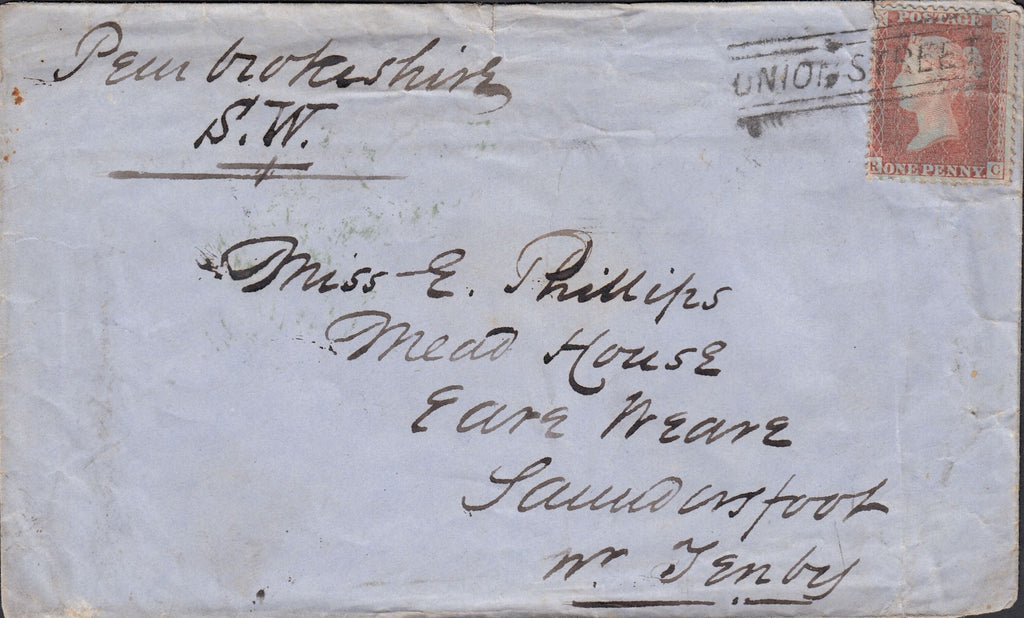 Pembrokeshire
S.W.
UNION STREET
POSTAGE
R ONE PENNY C
Miss E. Phillips
Mead House
Eare Weare
Saundersfoot
nr Tenby